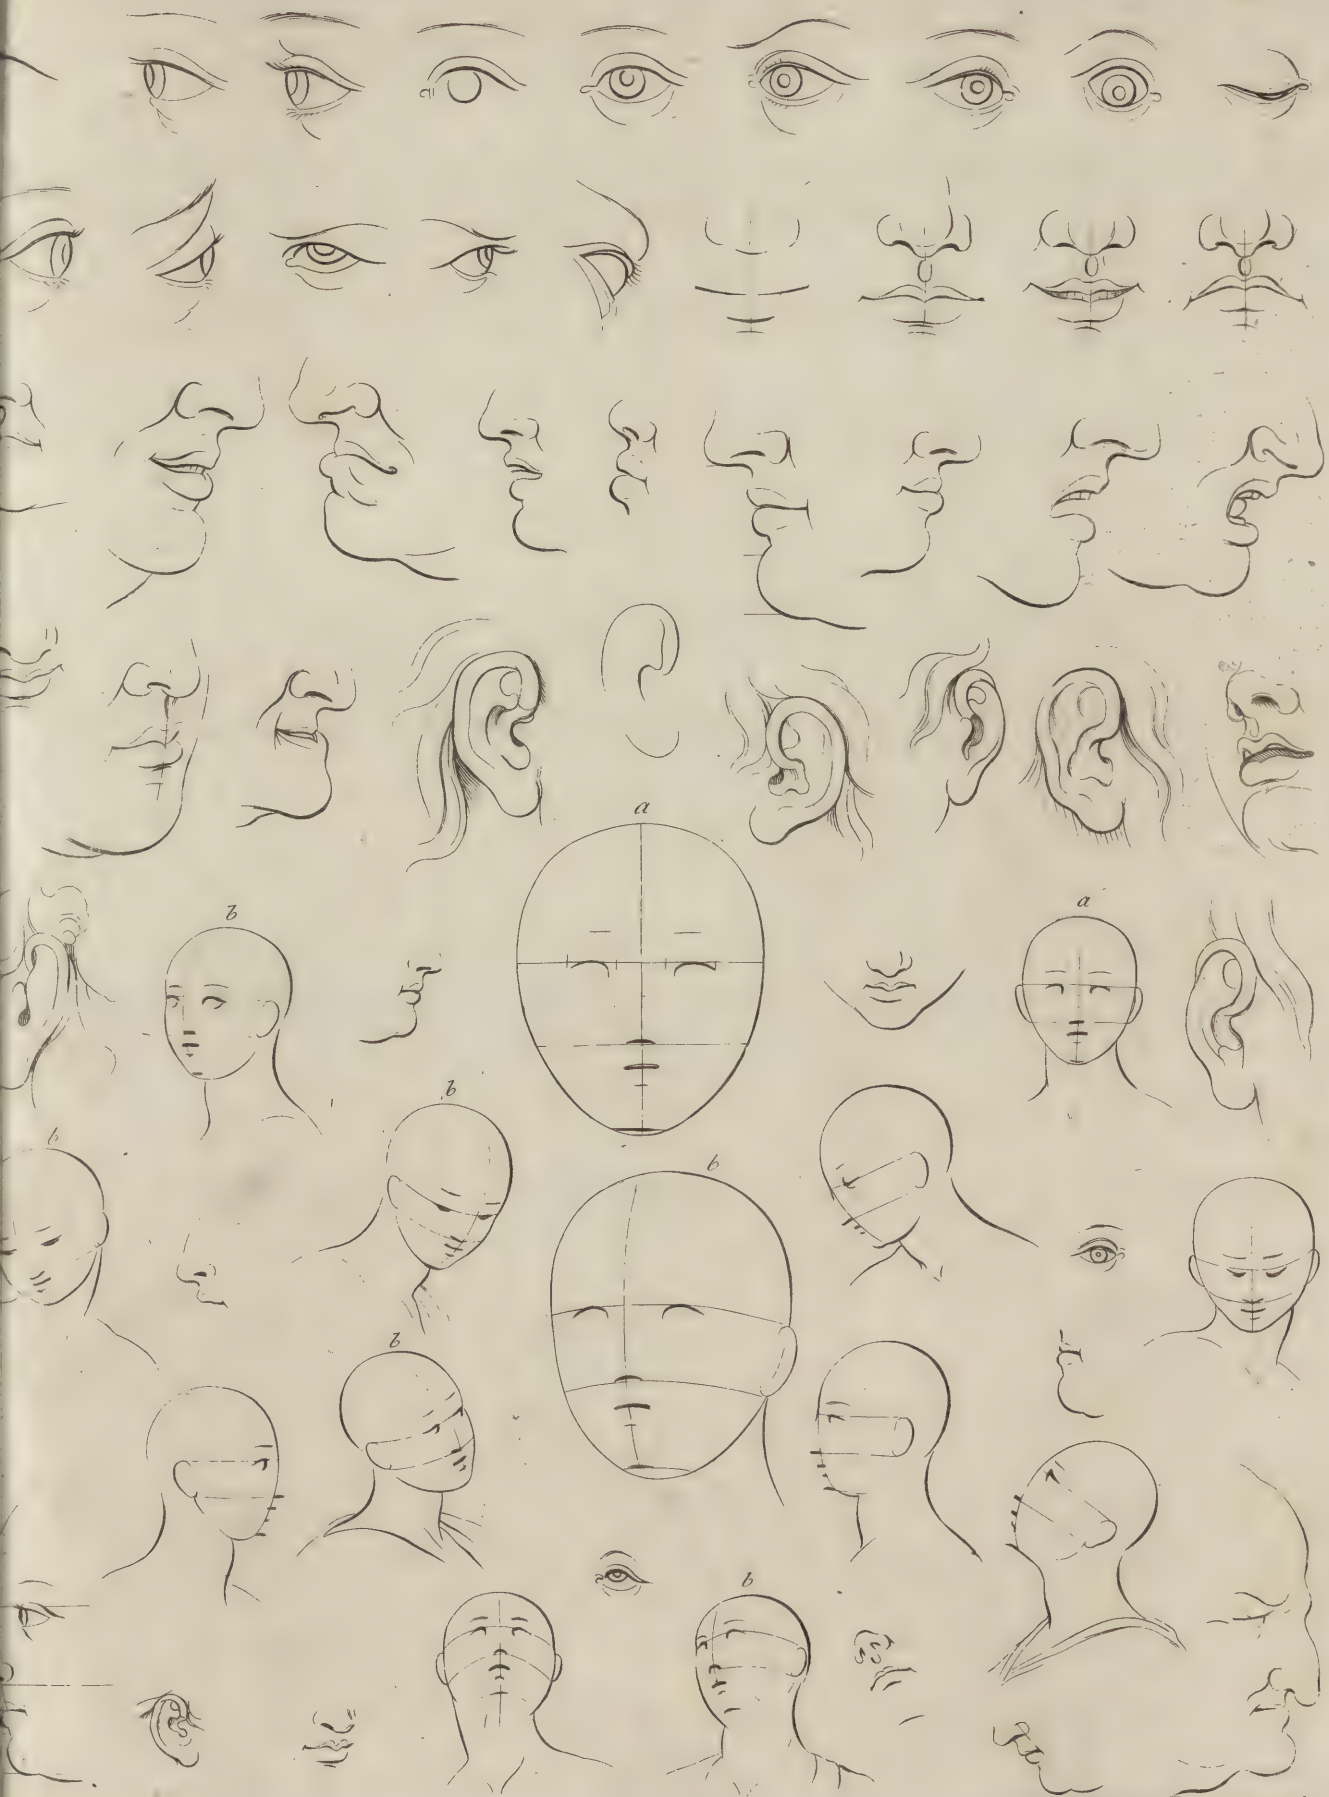 a
b
a
b
b
b
b
b